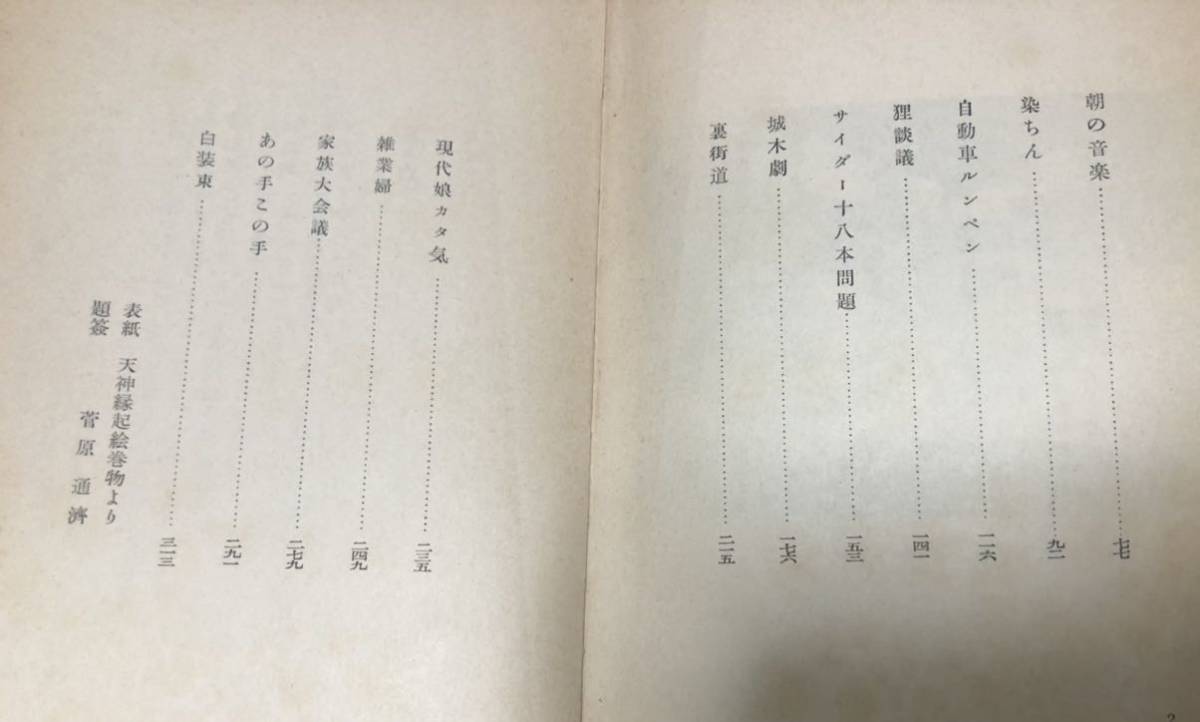 朝の音楽……………七七
染ちん……………九二
自動車ルンペン……………一一六
狸談議……………一四一
サイダー十八本問題……………一五三
城木劇……………一七六
裏街道……………二一五
2
現代娘カタ気……………二三五
雑業婦……………二四九
家族大会議……………二七九
あの手この手……………二九一
白装束……………三一三
表紙 天神縁起絵巻物より
題簽 菅原通濟